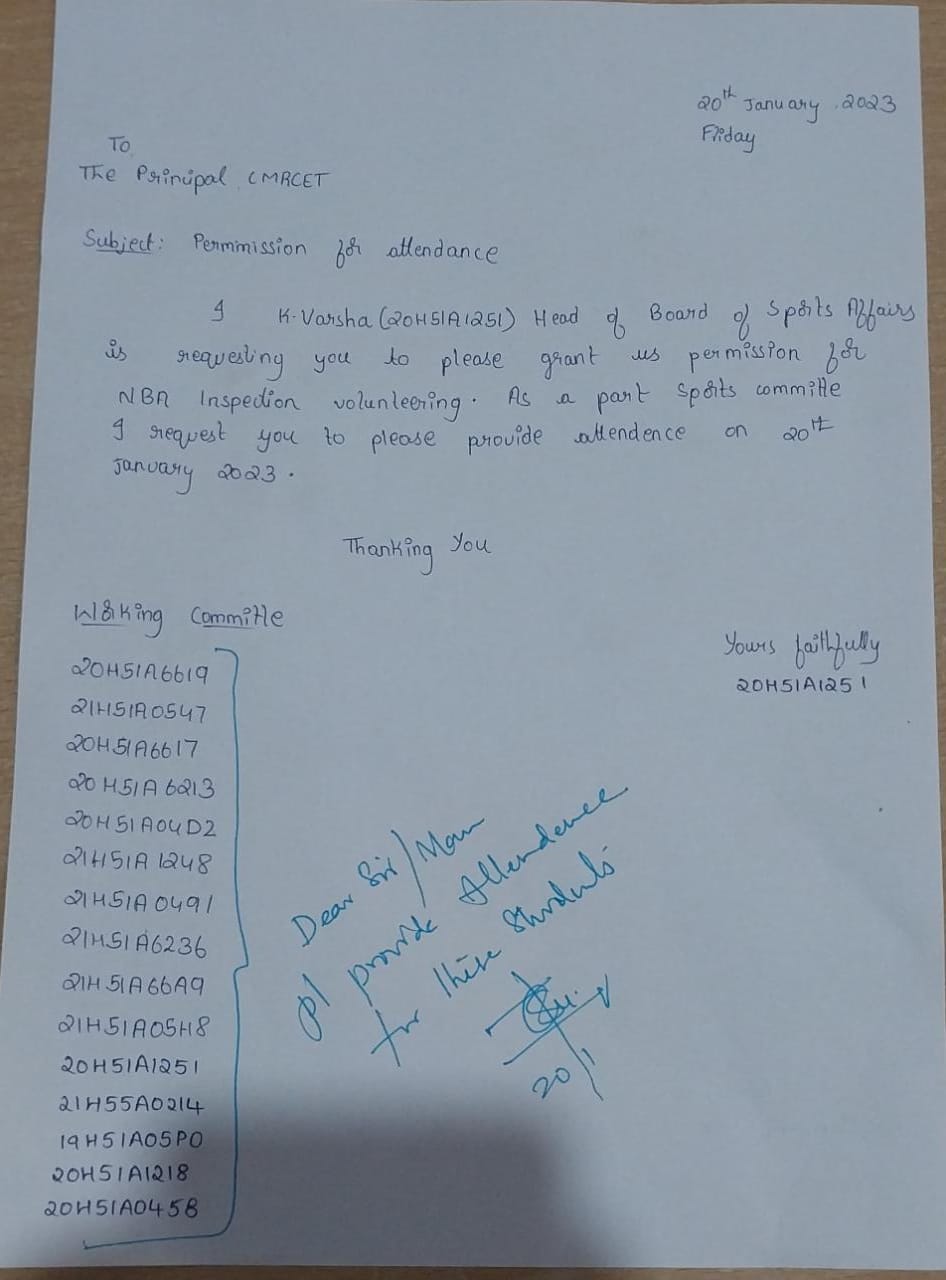 20th January 2023
Friday
To,
The Principal, CMRCET
Subject: Permmission for attendance
I K. Varsha (20H51A1251) Head of Board of Sports Affairs
is requesting you to please grant us permission for
NBA Inspection volunteering. As a part sports committe
I request you to please provide attendence on 20th
January 2023.
Thanking You
Working Committe
20H51A6619
21H51A0547
20H51A6617
20H51A6213
20H51A04D2
21H51A1248
21H51A0491
21H51A6236
21H51A66A9
21H51A05H8
20H51A1251
21H55A0214
19H51A05P0
20H51A1218
20H51A045B
Yours faithfully
20H51A1251
Dear Sir/Mam
Pl provide Attendence
for these students
20/1